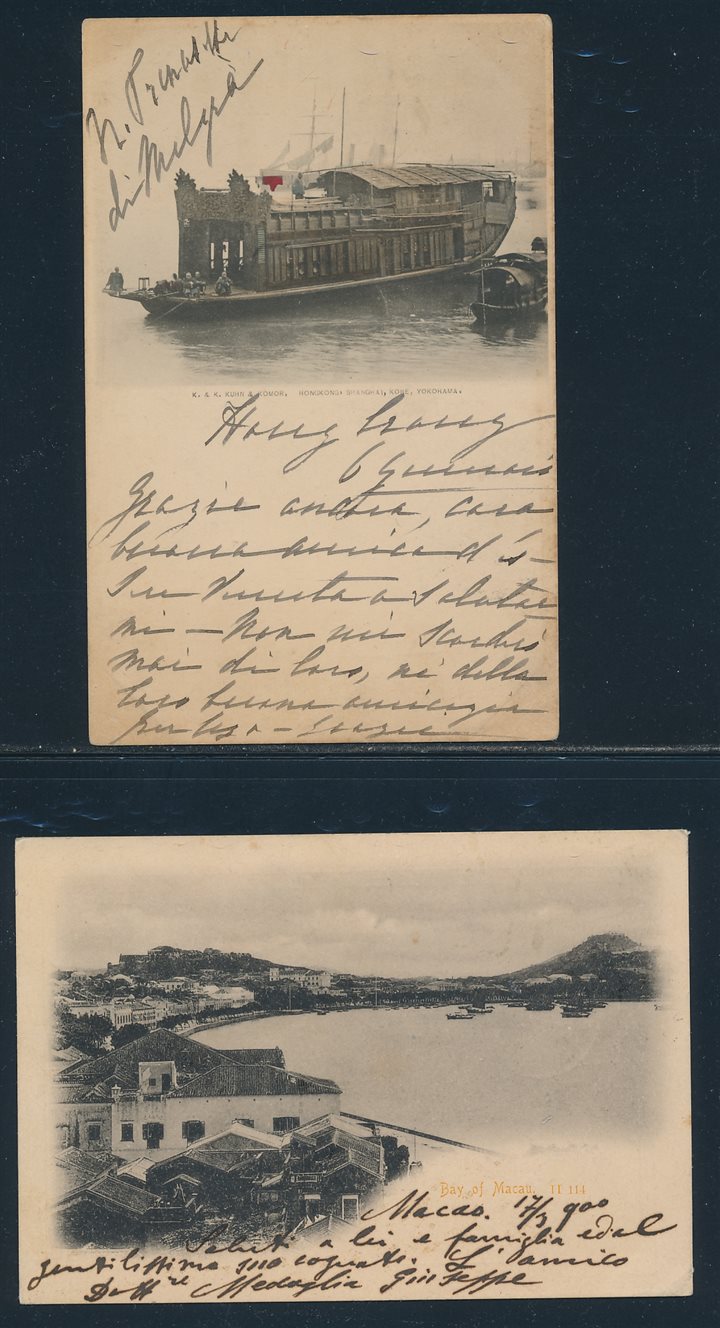 di
K. & K. KUHN & KOMOR, HONGKONG, SHANGHAI, KOBE, YOKOHAMA.
Hong Kong
6
Grazie ancora, cara
buona amica d'es-
sere venuta a salutar
mi – Non mi scorderò
mai di loro, nè della
loro buona amicizia
per – Grazie
Bay of Macau. II 114
Macao. 17/3 900
Saluti a lei e famiglia ed al
gentilissimo suo cognato. L'amico
Dottre Medaglia Giuseppe